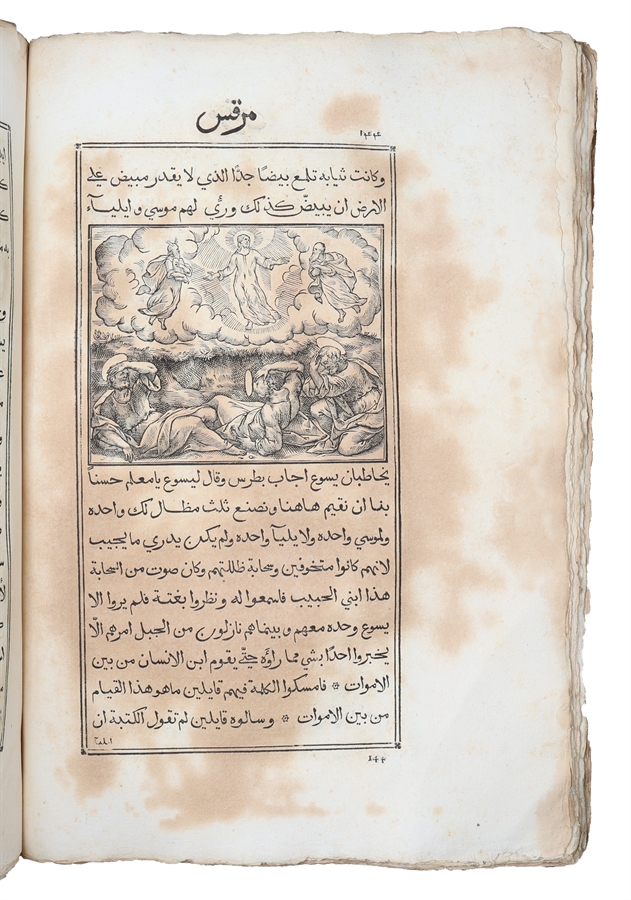 مرقس
وكانت ثيابه تلمع بيضًا جدًا الذي لا يقدر مبيض علي
الارض ان يبيضّ كذلك ورؤي لهم موسي وايليآء
يخاطبان يسوع اجاب بطرس وقال ليسوع يا معلم حسناً
بنا ان نقيم هاهنا ونصنع ثلث مظال لك واحده
ولموسي واحده ولايليآ واحده ولم يكن يدري ما يجيب
لانهم كانوا متخوفين وسحابة ظللتهم وكان صوت من السحابة
هذا ابني الحبيب فاسمعوا له ونظروا بغتة فلم يروا الا
يسوع وحده معهم وبينما هم نازلون من الجبل امرهم الّا
يخبروا احدًا بشي مما راوه حتّي يقوم ابن الانسان من بين
الاموات * فامسكوا الكلمة فيهم قايلين ما هو هذا القيام
من بين الاموات * وسالوه قايلين لم تقول الكتبة ان